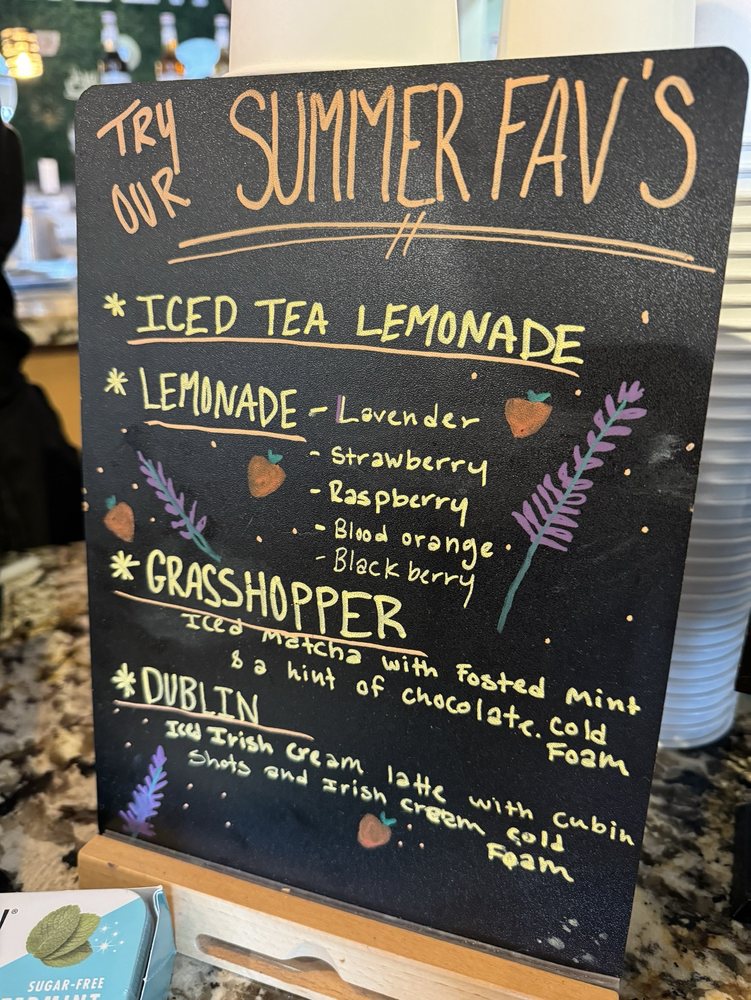 TRY OUR SUMMER FAV'S
* ICED TEA LEMONADE
* LEMONADE - Lavender
- Strawberry
- Raspberry
- Blood orange
- Blackberry
* GRASSHOPPER
Iced Matcha with Fosted Mint
& a hint of chocolate. Cold
Foam
* DUBLIN
Iced Irish Cream latte with Cubin
Shots and Irish Creem Cold
Foam
SUGAR-FREE